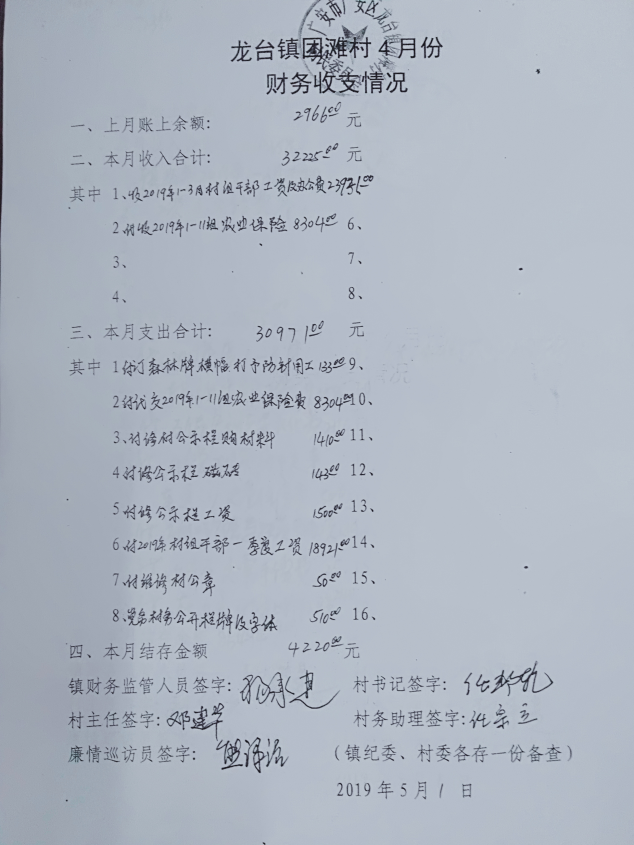 龙台镇团滩村4月份
财务收支情况
一、上月账上余额: 2966.00 元
二、本月收入合计: 32225.00 元
其中 1、收2019年1-3月村组干部工资及办公费23921.00
2、付收2019年1-11组农业保险 8304.00 6、
3、 7、
4、 8、
三、本月支出合计: 30971.00 元
其中 1付订森林牌横幅打予防针用工133.00 9、
2付交2019年1-11组农业保险费 8304.00 10、
3、付修村公示栏购材料 1410.00 11、
4付修公示栏磁砖 143.00 12、
5付修公示栏工资 1500.00 13、
6、付2019年村组干部一季度工资 18921.00 14、
7、付维修村公章 50.00 15、
8、党务村务公开栏牌及字体 510.00 16、
四、本月结存金额 4220.00 元
镇财务监管人员签字: 村书记签字:
村主任签字:邓建华 村务助理签字:任宗立
廉情巡访员签字: (镇纪委、村委各存一份备查)
2019年5月1日